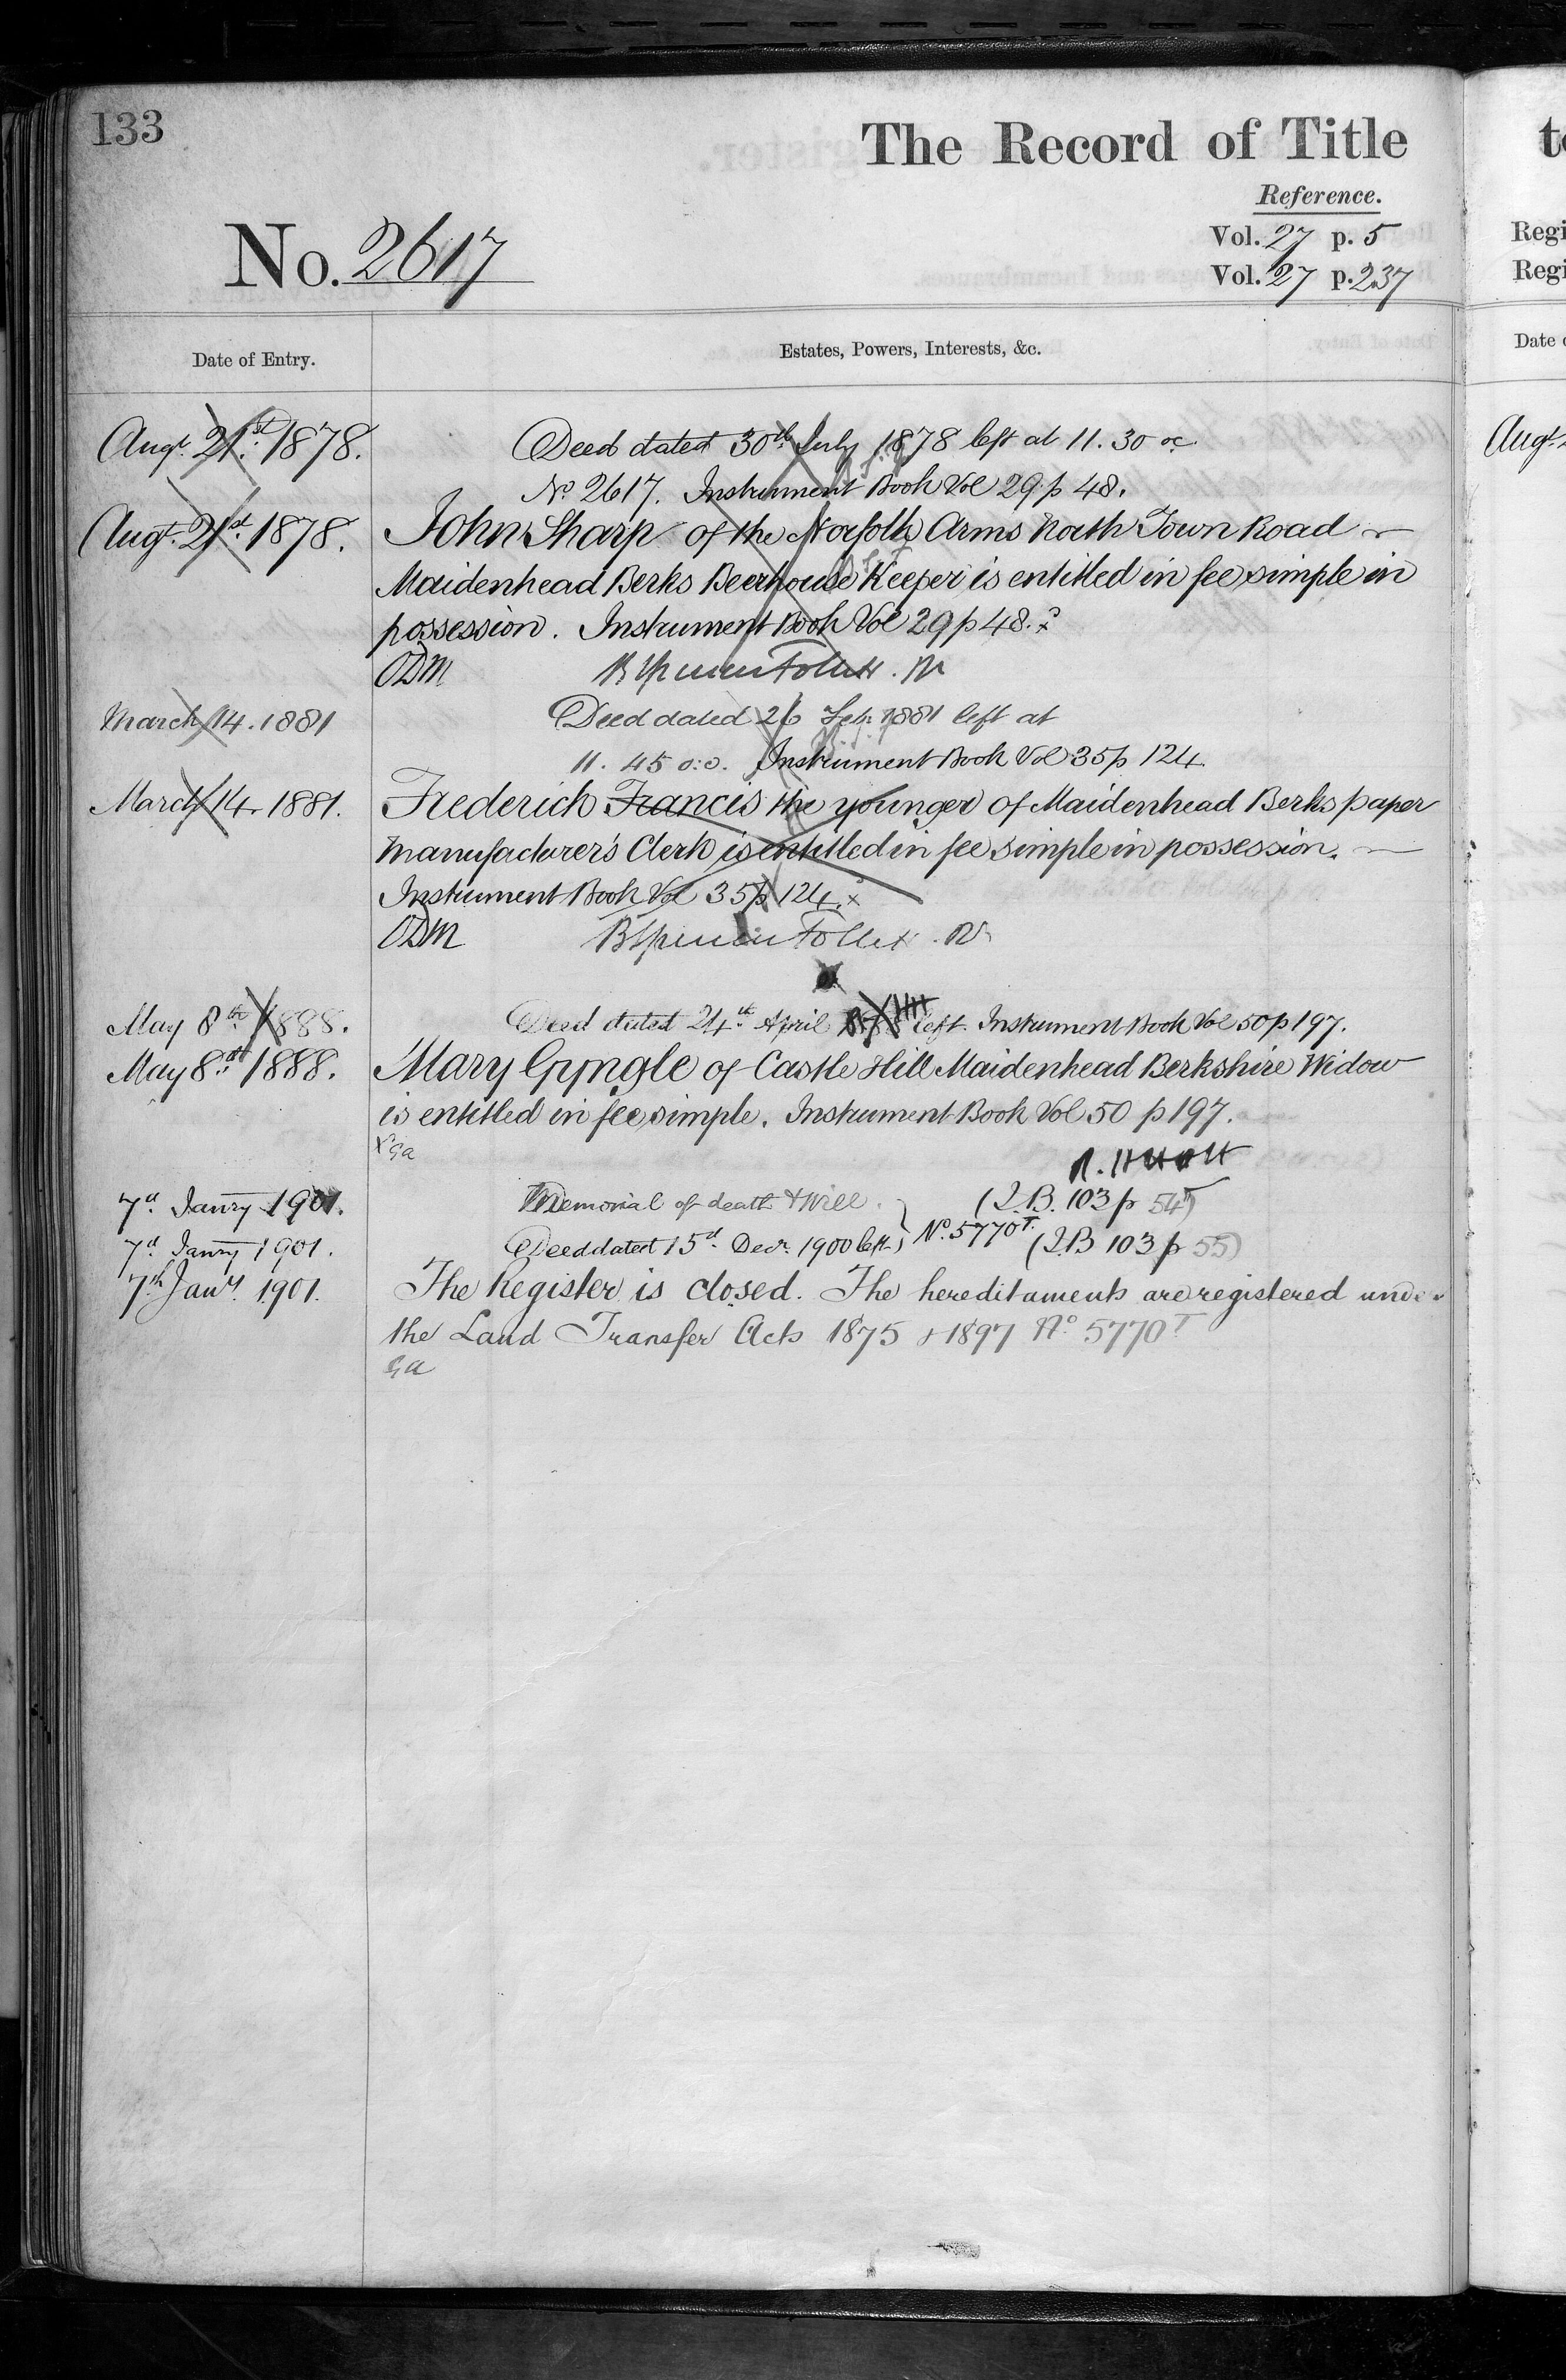 133
The Record of Title
Reference.
No. 2617
Vol. 27 p. 5
Vol. 27 p. 237
Date of Entry.
Estates, Powers, Interests, &c.
Augt. 21st. 1878.
Deed dated 30th July 1878 left at 11.30 oc
No 2617. Instrument Book Vol 29 p 48.
Augt. 21st 1878.
John Sharp of the Norfolk Arms North Town Road
Maidenhead Berks Beerhouse Keeper is entitled in fee simple in
possession. Instrument Book Vol 29 p 48.
ODM
March 14. 1881
Deed dated 26 Feb. 1881 left at
11. 45 o:c. Instrument Book Vol 35 p 124
March 14. 1881.
Frederick Francis the younger of Maidenhead Berks paper
Manufacturer's Clerk is entitled in fee simple in possession.
Instrument Book Vol 35 p 124.
ODM
May 8th 1888.
Deed dated 24th April left. Instrument Book Vol 50 p 197.
May 8th 1888.
Mary Gyngle of Castle Hill Maidenhead Berkshire Widow
is entitled in fee simple. Instrument Book Vol 50 p 197.
7d Janry 1901.
Memorial of death & Will. (I.B. 103 p 54)
7d Janry 1901.
Deed dated 15d Decr. 1900 left) No. 5770T. (I.B 103 p 55)
7th Jany. 1901.
The Register is closed. The hereditaments are registered under
the Land Transfer Acts 1875 & 1897 No 5770T
Ga
to
Regi
Regi
Date o
Augt. 2